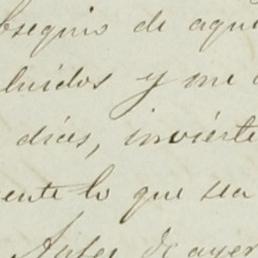 obsequio de aque
luidos y me
dias, invierte
ente lo que sea
Antes de ayer